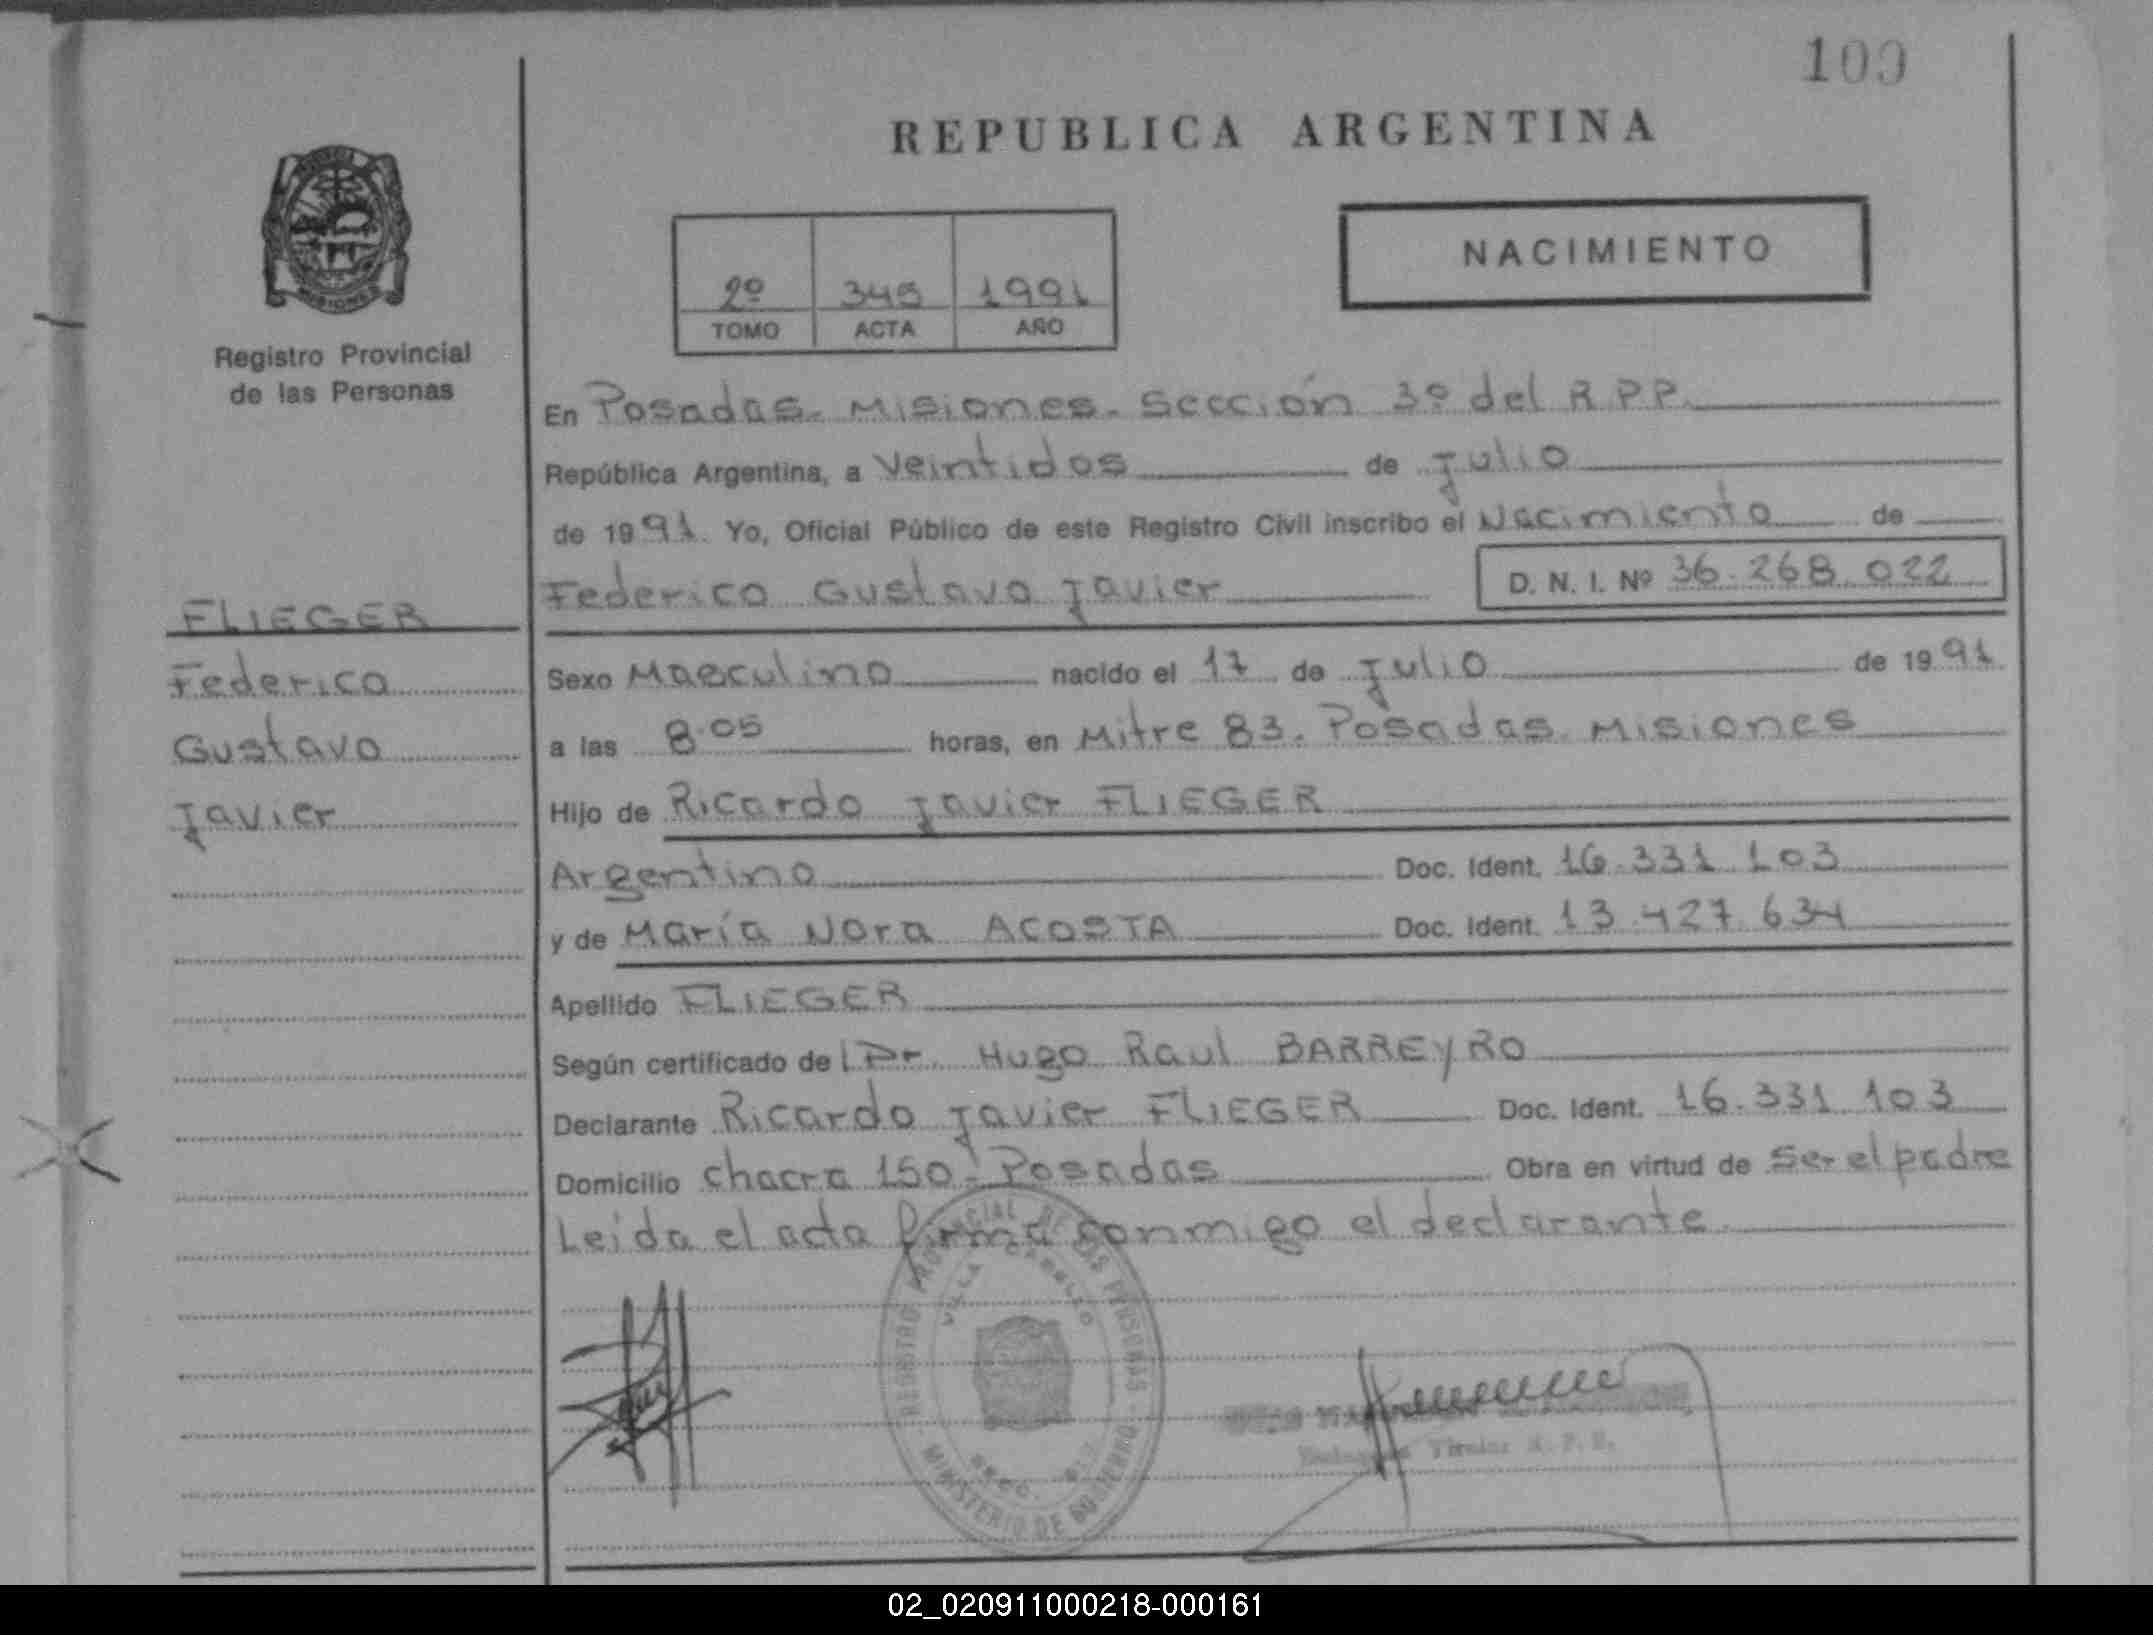 100
REPUBLICA ARGENTINA
NACIMIENTO
2º 345 1991
TOMO ACTA AÑO
MISIONES
Registro Provincial
de las Personas
En Posadas - Misiones - Sección 3º del R.P.P.
República Argentina, a Veintidos de Julio
de 1991. Yo, Oficial Público de este Registro Civil inscribo el Nacimiento de
Federico Gustavo Javier D. N. I. Nº 36.268.022
FLIEGER
Federico
Gustavo
Javier
Sexo Masculino nacido el 17 de Julio de 1991
a las 8.05 horas, en Mitre 83. Posadas Misiones
Hijo de Ricardo Javier FLIEGER
Argentino Doc. Ident. 16.331.103
y de María Nora ACOSTA Doc. Ident. 13.427.634
Apellido FLIEGER
Según certificado del Dr. Hugo Raul BARREYRO
Declarante Ricardo Javier FLIEGER Doc. Ident. 16.331.103
Domicilio chacra 150 - Posadas Obra en virtud de Ser el padre
Leida el acta firma conmigo el declarante
REGISTRO PROVINCIAL DE LAS PERSONAS
VILLA CABELLO
MINISTERIO DE GOBIERNO
Titular R. P. P.
02_020911000218-000161